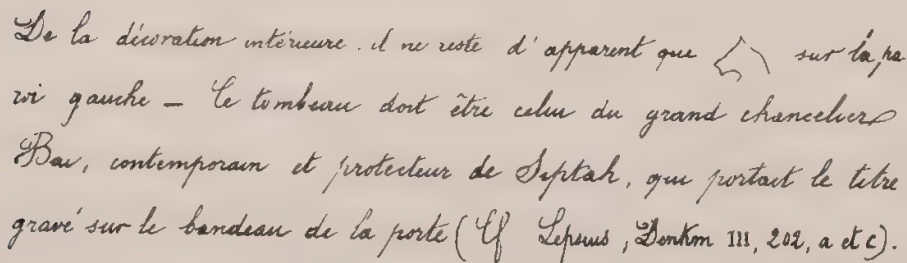 De la décoration intérieure. il ne reste d'apparent que sur la pa
roi gauche – Ce tombeau doit être celui du grand chancelier
Bai, contemporain et protecteur de Siptah, qui portait le titre
gravé sur le bandeau de la porte (Cf Lepsius, Denkm III, 202, a et c).